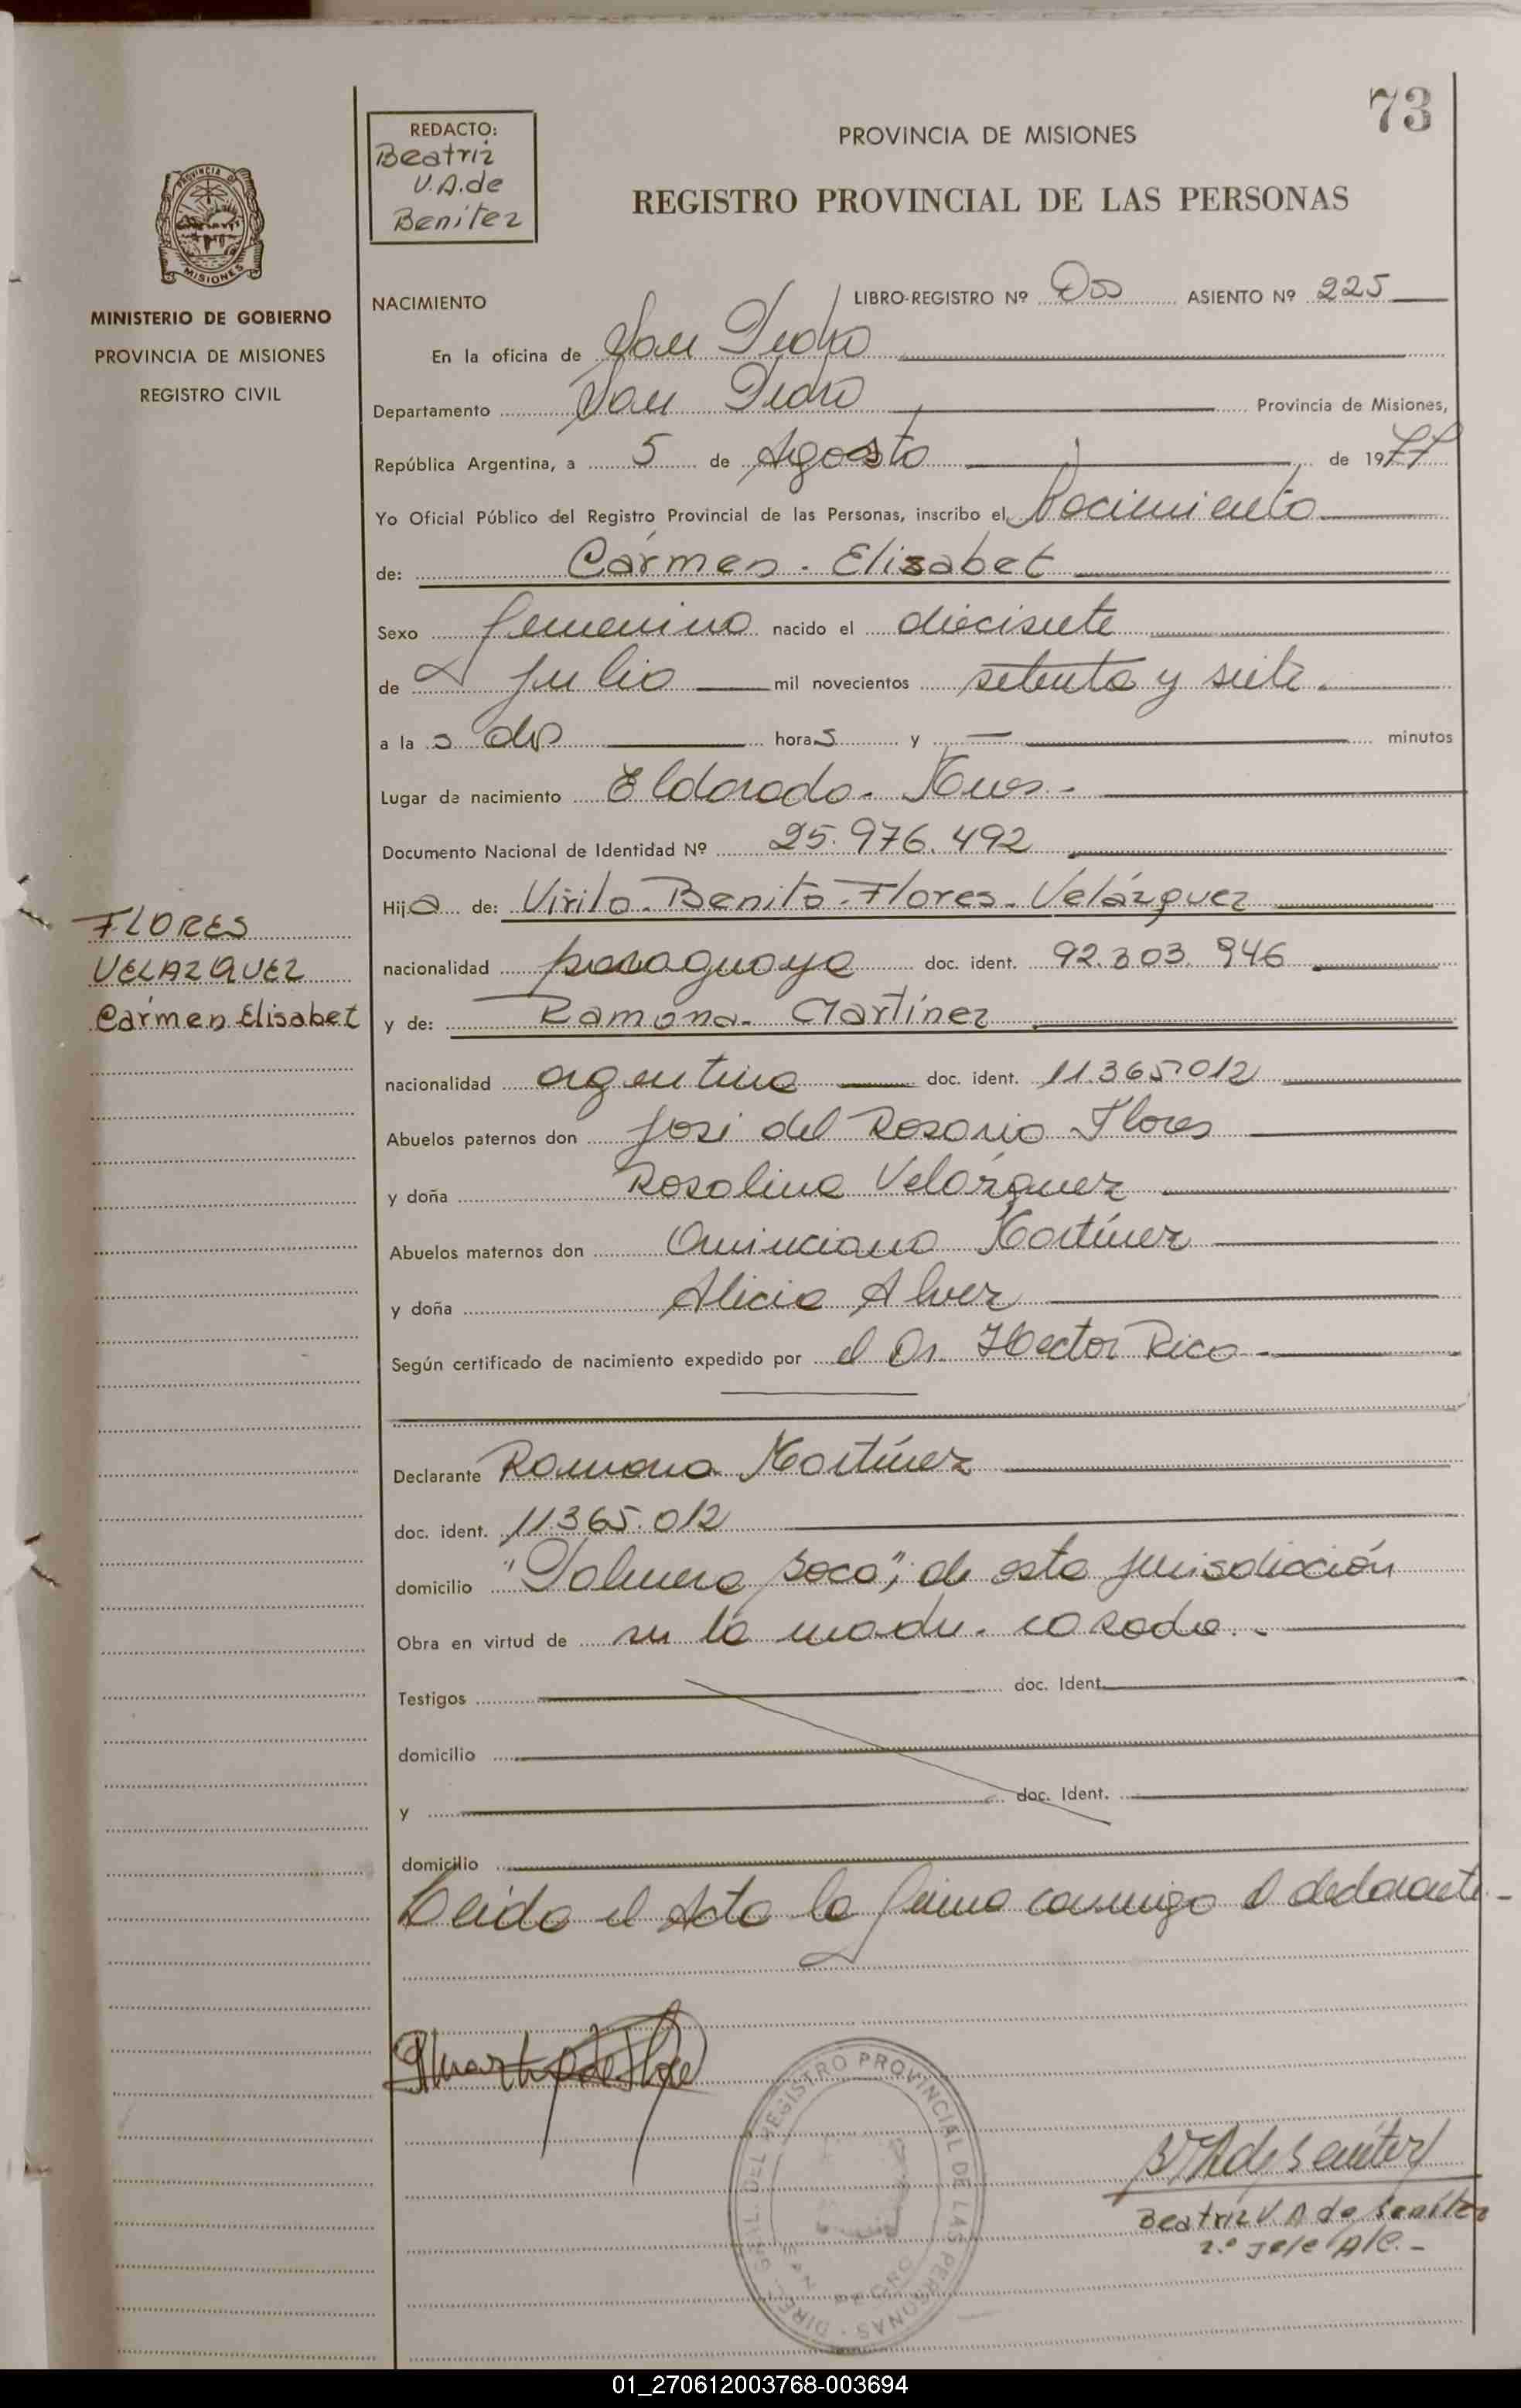 73
REDACTO:
Beatriz
V.A. de
Benitez
PROVINCIA DE MISIONES
REGISTRO PROVINCIAL DE LAS PERSONAS
PROVINCIA D
MISIONES
MINISTERIO DE GOBIERNO
PROVINCIA DE MISIONES
REGISTRO CIVIL
NACIMIENTO LIBRO-REGISTRO Nº Dos ASIENTO Nº 225
En la oficina de San Pedro
Departamento San Pedro Provincia de Misiones,
República Argentina, a 5 de Agosto de 1977
Yo Oficial Público del Registro Provincial de las Personas, inscribo el Nacimiento
de: Cármen - Elisabet
Sexo femenino nacido el diecisiete
de julio mil novecientos setenta y siete
a la s dos horas y — minutos
Lugar de nacimiento Eldorado - Mnes -
Documento Nacional de Identidad Nº 25.976.492
Hija de: Virilo - Benito - Flores - Velázquez
nacionalidad paraguaya doc. ident. 92.303.946
y de: Ramona - Martínez
nacionalidad argentina doc. ident. 11.365.012
Abuelos paternos don José del Rosario Flores
y doña Rosalina Velázquez
Abuelos maternos don Martínez
y doña Alicia Alvez
Según certificado de nacimiento expedido por el Dr. Hector Rico -
FLORES
VELAZQUEZ
Cármen Elisabet
Declarante Ramona Martínez
doc. ident. 11.365.012
domicilio "Palmera Boca", de esta jurisdicción
Obra en virtud de ser la madre. casada. -
Testigos doc. Ident.
domicilio
y doc. Ident.
domicilio
Leída el Acta la firma conmigo el declarante -
DIREC. GRAL. DEL REGISTRO PROVINCIAL DE LAS PERSONAS
SAN PEDRO
BVAde Benítez
Beatriz V A de Benítez
2.º Jefe A/C. -
01_270612003768-003694